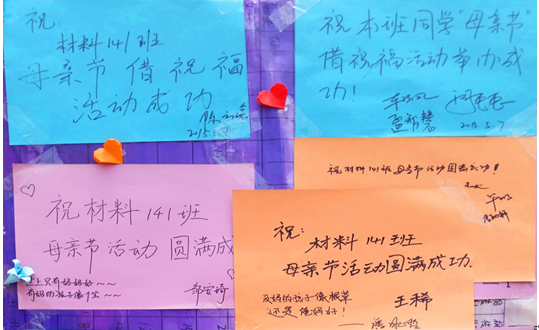 祝:
材料141班
母亲节借祝福
活动成功
2015.5.7
祝本班同学"母亲节"
借祝福活动举办成
功!
2015.5.7
祝材料141班母亲节活动圆满成功!
祝材料141班
母亲节活动圆满成
世上只有妈妈好~~
有妈的孩子像个宝~~
祝:
材料141班
母亲节活动圆满成功.
没妈的孩子像根草
还是俺妈好!
王稀